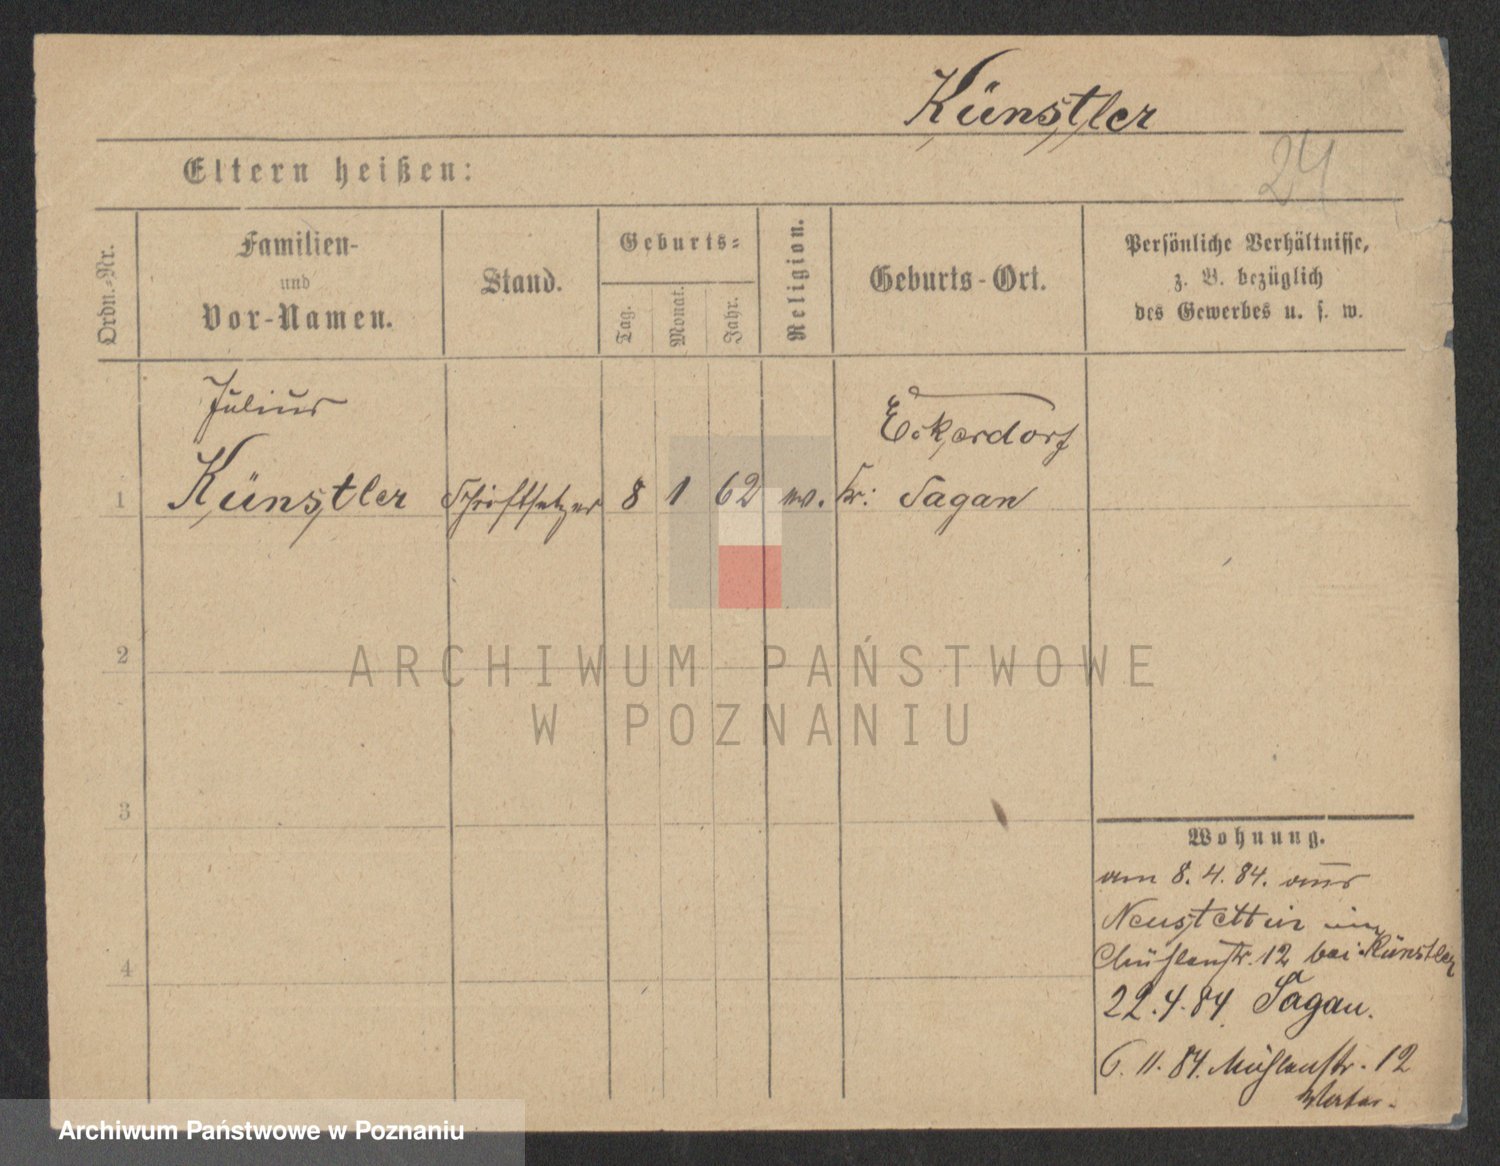 Künstler
24
Eltern heißen:
Ordn.-Nr.
Familien-
und
Vor-Namen.
Stand.
Geburts-
Tag.
Monat.
Jahr.
Religion.
Geburts-Ort.
Persönliche Verhältnisse,
z. B. bezüglich
des Gewerbes u. s. w.
Julius
Eckersdorf
1 Künstler Schriftsetzer 8 1 62 ev. Kr: Sagan
2
3
4
Wohnung.
am 8.4.84. aus
Neustettin
Mühlenstr. 12 bei Künstler
22.4.84 Sagan.
6.11.84. Mühlenstr. 12
ARCHIWUM PAŃSTWOWE
W POZNANIU
Archiwum Państwowe w Poznaniu